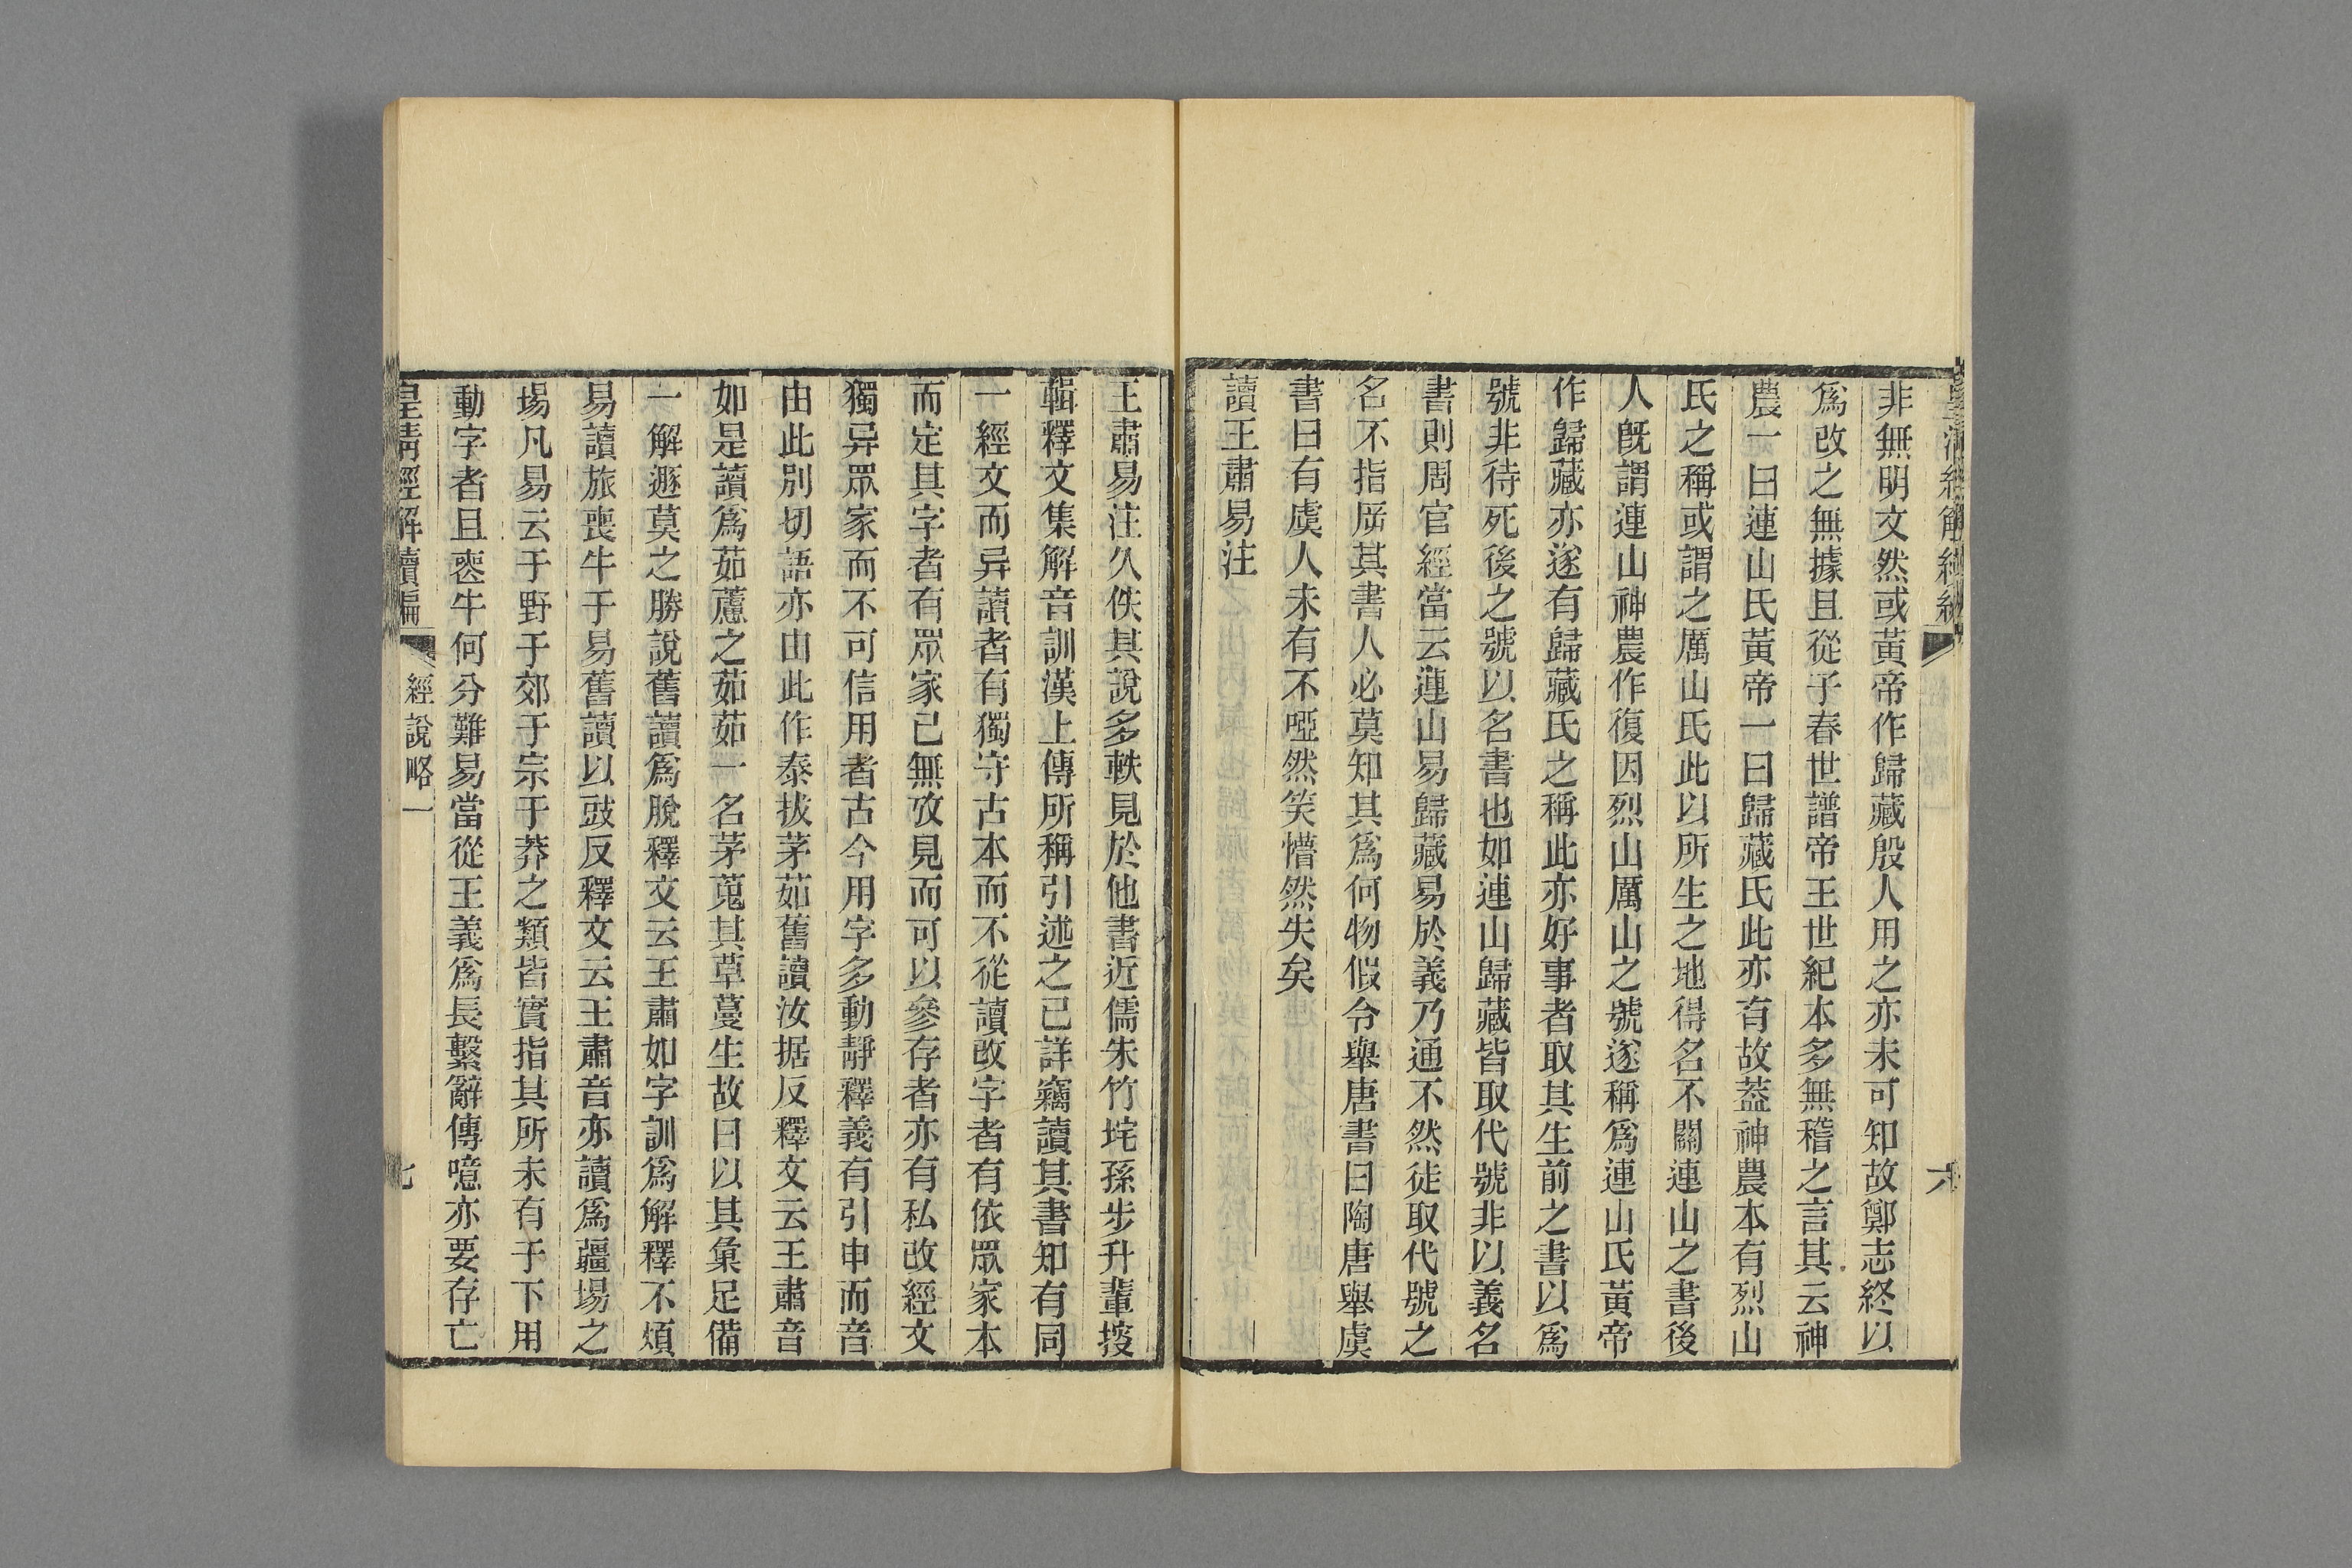 非無明文然或黃帝作歸藏殷人用之亦未可知故鄭志終以
爲改之無據且從子春世譜帝王世紀本多無稽之言其云神
農一曰連山氏黃帝一曰歸藏氏此亦有故葢神農本有烈山
氏之稱或謂之厲山氏此以所生之地得名不關連山之書後
人旣謂連山神農作復因烈山厲山之號遂稱爲連山氏黃帝
作歸藏亦遂有歸藏氏之稱此亦好事者取其生前之書以爲
號非待死後之號以名書也如連山歸藏皆取代號非以義名
書則周官經當云連山易歸藏易於義乃通不然徒取代號之
名不指厥其書人必莫知其爲何物假令舉唐書曰陶唐舉虞
書曰有虞人未有不啞然笑懵然失矣
讀王肅易注
王肅易注久佚其說多軼見於他書近儒朱竹垞孫步升輩按
輯釋文集解音訓漢上傳所稱引述之已詳竊讀其書知有同
一經文而异讀者有獨守古本而不從讀改字者有依眾家本
而定其字者有眾家已無攷見而可以參存者亦有私改經文
獨异眾家而不可信用者古今用字多動靜釋義有引申而音
由此別切語亦由此作泰拔茅茹舊讀汝据反釋文云王肅音
如是讀爲茹藘之茹茹一名茅蒐其草蔓生故曰以其彙足備
一解遯莫之勝說舊讀爲脫釋文云王肅如字訓爲解釋不煩
易讀旅喪牛于易舊讀以豉反釋文云王肅音亦讀爲疆場之
場凡易云于野于郊于宗于莽之類皆實指其所未有于下用
動字者且喪牛何分難易當從王義爲長繫辭傳噫亦要存亡
皇淸經解續編
經說略一
七
六